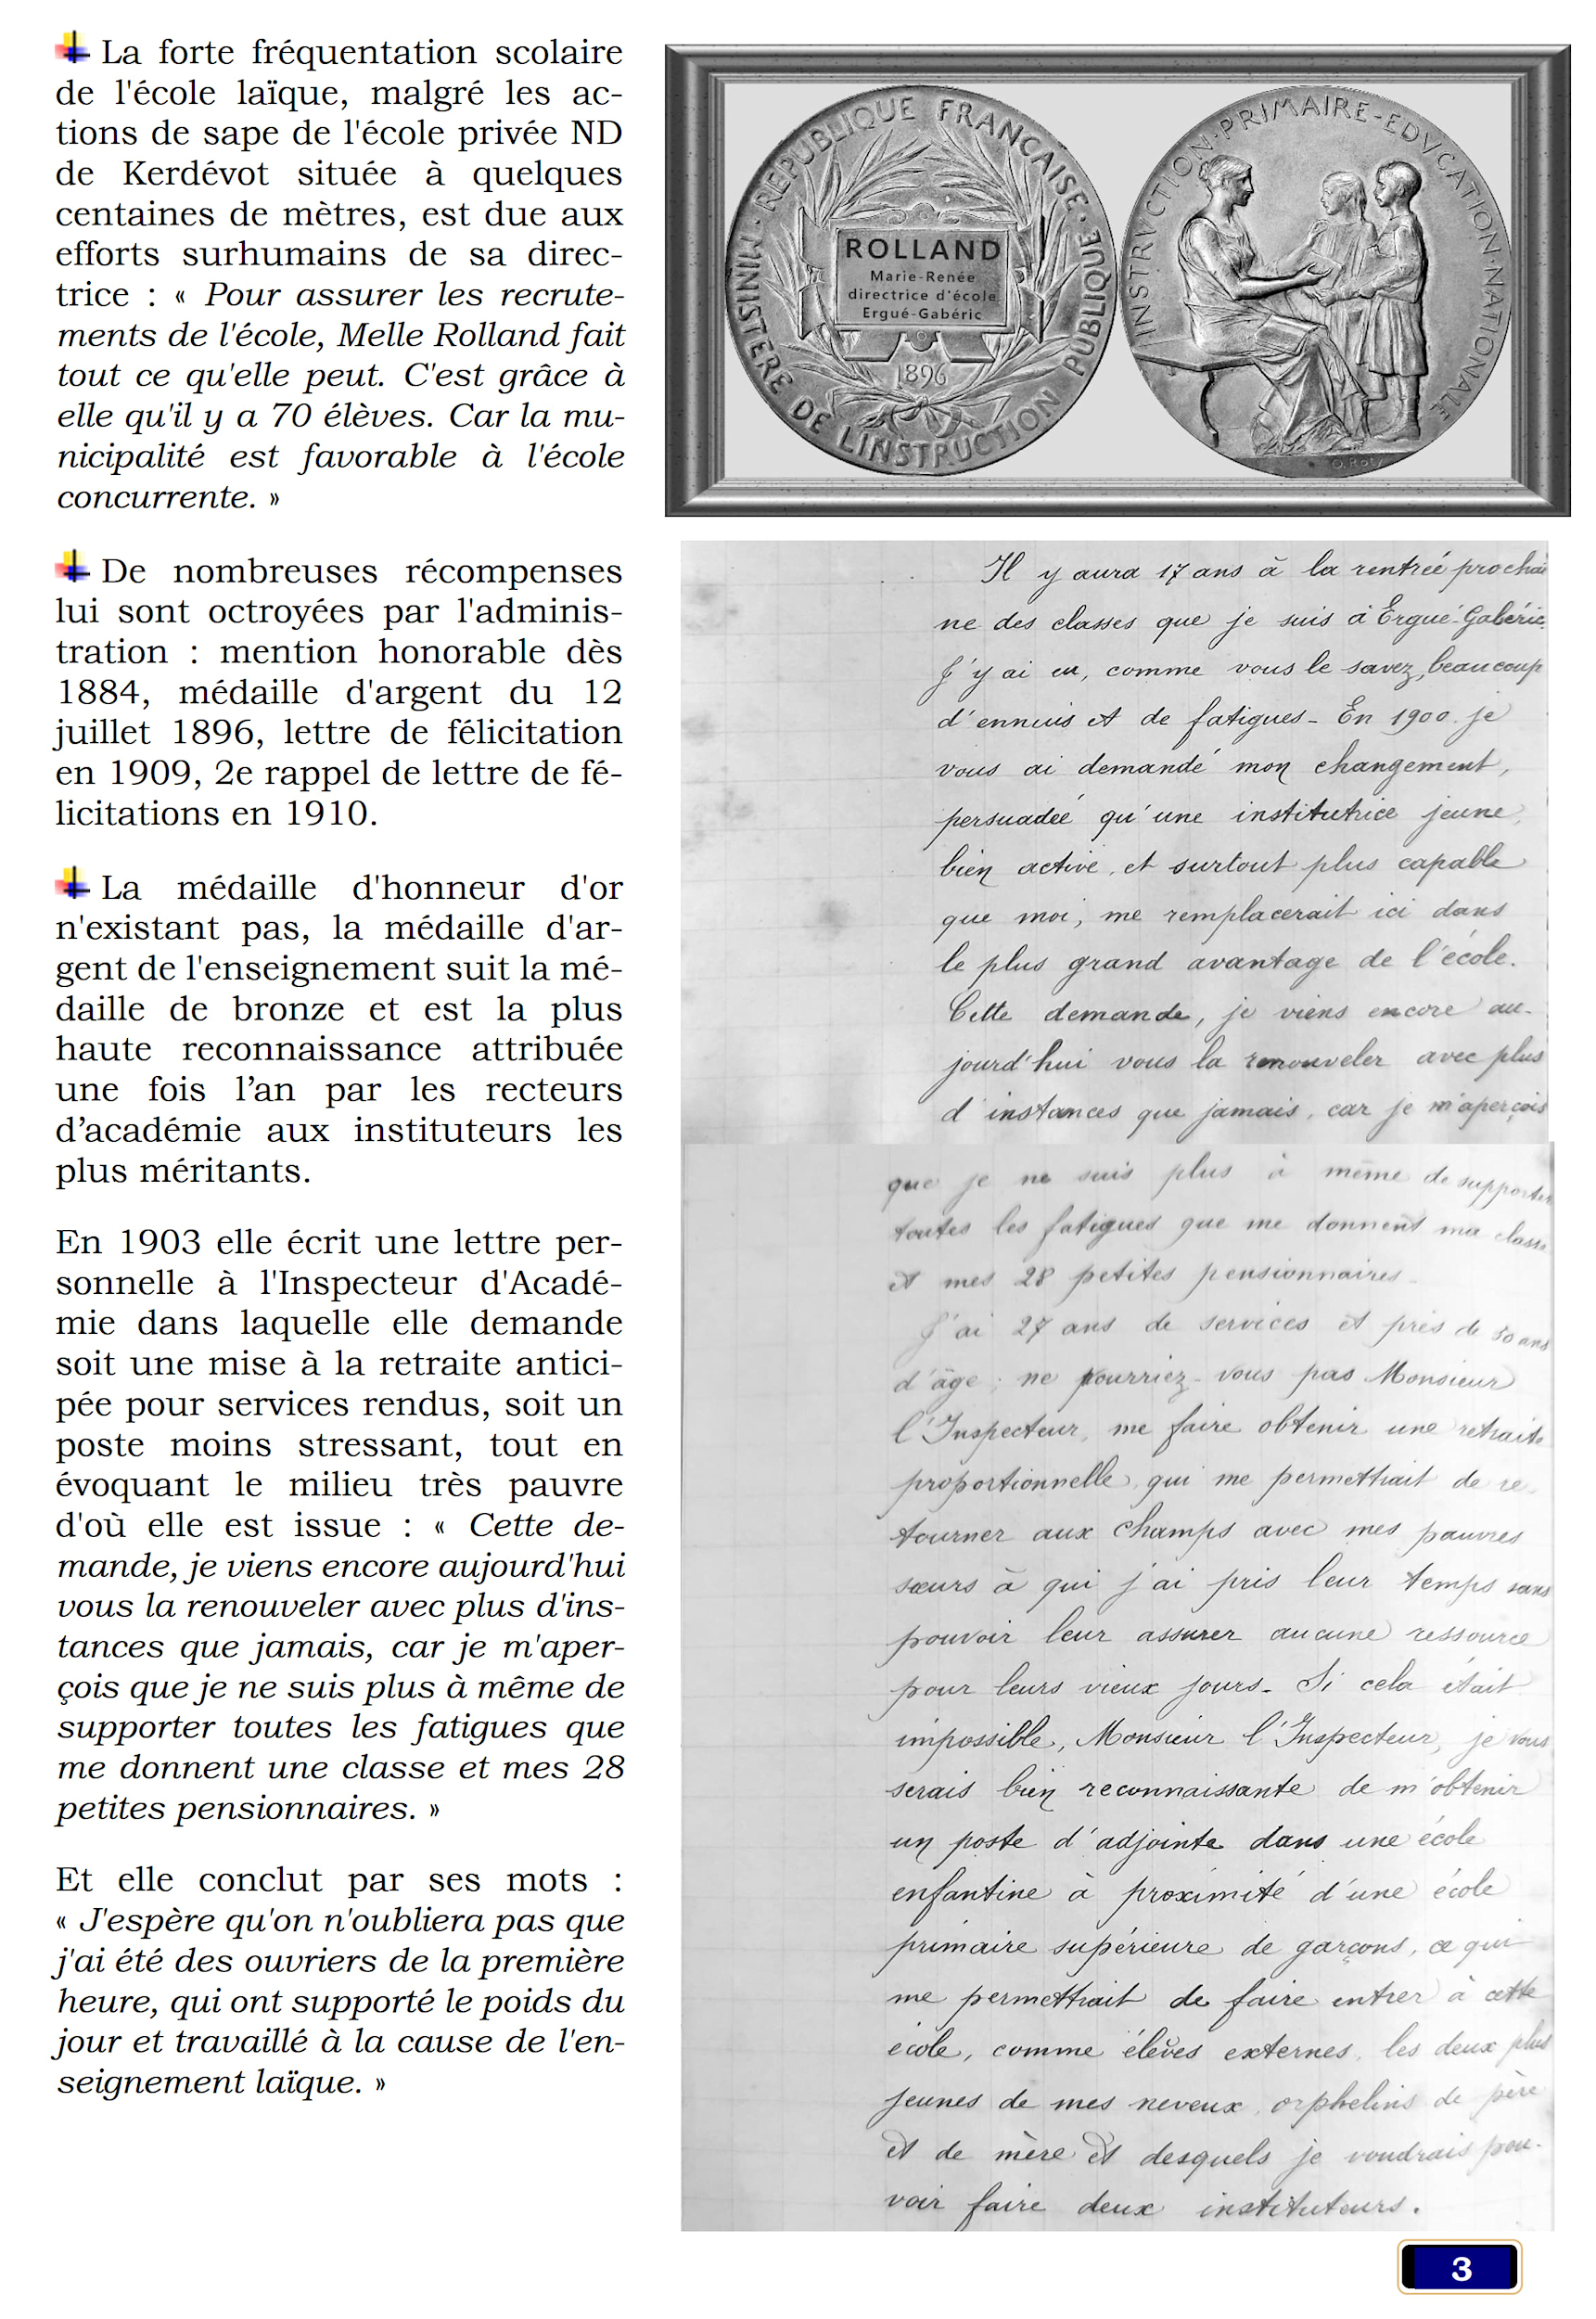 La forte fréquentation scolaire
de l'école laïque, malgré les ac-
tions de sape de l'école privée ND
de Kerdévot située à quelques
centaines de mètres, est due aux
efforts surhumains de sa direc-
trice : « Pour assurer les recrute-
ments de l'école, Melle Rolland fait
tout ce qu'elle peut. C'est grâce à
elle qu'il y a 70 élèves. Car la mu-
nicipalité est favorable à l'école
concurrente. »
De nombreuses récompenses
lui sont octroyées par l'adminis-
tration : mention honorable dès
1884, médaille d'argent du 12
juillet 1896, lettre de félicitation
en 1909, 2e rappel de lettre de fé-
licitations en 1910.
La médaille d'honneur d'or
n'existant pas, la médaille d'ar-
gent de l'enseignement suit la mé-
daille de bronze et est la plus
haute reconnaissance attribuée
une fois l’an par les recteurs
d’académie aux instituteurs les
plus méritants.
En 1903 elle écrit une lettre per-
sonnelle à l'Inspecteur d'Acadé-
mie dans laquelle elle demande
soit une mise à la retraite antici-
pée pour services rendus, soit un
poste moins stressant, tout en
évoquant le milieu très pauvre
d'où elle est issue : « Cette de-
mande, je viens encore aujourd'hui
vous la renouveler avec plus d'ins-
tances que jamais, car je m'aper-
çois que je ne suis plus à même de
supporter toutes les fatigues que
me donnent une classe et mes 28
petites pensionnaires. »
Et elle conclut par ses mots :
« J'espère qu'on n'oubliera pas que
j'ai été des ouvriers de la première
heure, qui ont supporté le poids du
jour et travaillé à la cause de l'en-
seignement laïque. »
MINISTERE DE L'INSTRUCTION PUBLIQUE · REPUBLIQUE FRANÇAISE ·
ROLLAND
Marie-Renée
directrice d'école
Ergué-Gabéric
1896
INSTRVCTION·PRIMAIRE-EDVCATION·NATIONALE
O. Roty
Il y aura 17 ans à la rentrée prochai
ne des classes que je suis à Ergué-Gabéric.
J'y ai eu, comme vous le savez, beaucoup
d'ennuis et de fatigues - En 1900 je
vous ai demandé mon changement,
persuadée qu'une institutrice jeune,
bien active, et surtout plus capable
que moi, me remplacerait ici dans
le plus grand avantage de l'école.
Cette demande, je viens encore au-
jourd'hui vous la renouveler avec plus
d'instances que jamais, car je m'aperçois
que je ne suis plus à même de supporter
toutes les fatigues que me donnent ma classe
et mes 28 petites pensionnaires -
J'ai 27 ans de services et près de 50 ans
d'âge ; ne pourriez-vous pas Monsieur
l'Inspecteur, me faire obtenir une retraite
proportionnelle, qui me permettrait de re-
tourner aux champs avec mes pauvres
sœurs à qui j'ai pris leur temps sans
pouvoir leur assurer aucune ressource
pour leurs vieux jours - Si cela était
impossible, Monsieur l'Inspecteur, je vous
serais bien reconnaissante de m'obtenir
un poste d'adjointe dans une école
enfantine à proximité d'une école
primaire supérieure de garçons, ce qui
me permettrait de faire entrer à cette
école, comme élèves externes, les deux plus
jeunes de mes neveux, orphelins de père
et de mère et desquels je voudrais pou-
voir faire deux instituteurs.
3